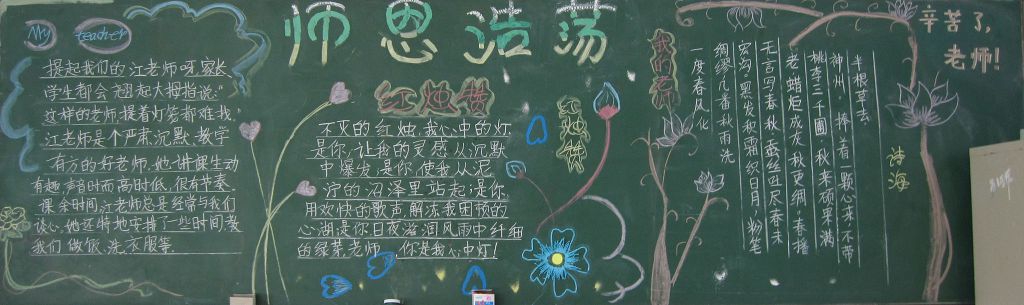 师恩浩荡
My teacher
提起我们的江老师呀,家长
学生都会翘起大拇指说:“
这样的老师,提着灯笼都难找.”
江老师是个严肃沉默、教学
有方的好老师.她讲课生动
有趣,声音时而高时低,很有节奏.
课余时间,江老师总是经常与我们
谈心.她还特地安排了一些时间教
我们做饭、洗衣服等
红烛赞
不灭的红烛,我心中的灯
是你,让我的灵感从沉默
中爆发,是你,使我从泥
泞的沼泽里站起;是你,
用欢快的歌声解冻我困顿的
心湖;是你日夜滋润风雨中纤细
的绿芽,老师,你是我心中灯!
红烛赞
我的老师
一度春风化
绸缪几番秋雨洗
宏沟,黑发秋霜织日月,粉笔
无言写春秋,蚕丝近尽春未
老,蜡炬成灰秋更稠,春播
桃李三千圃,秋来硕果满
神州,捧着一颗心来,不带
半根草去
诗海
辛苦了,
老师!